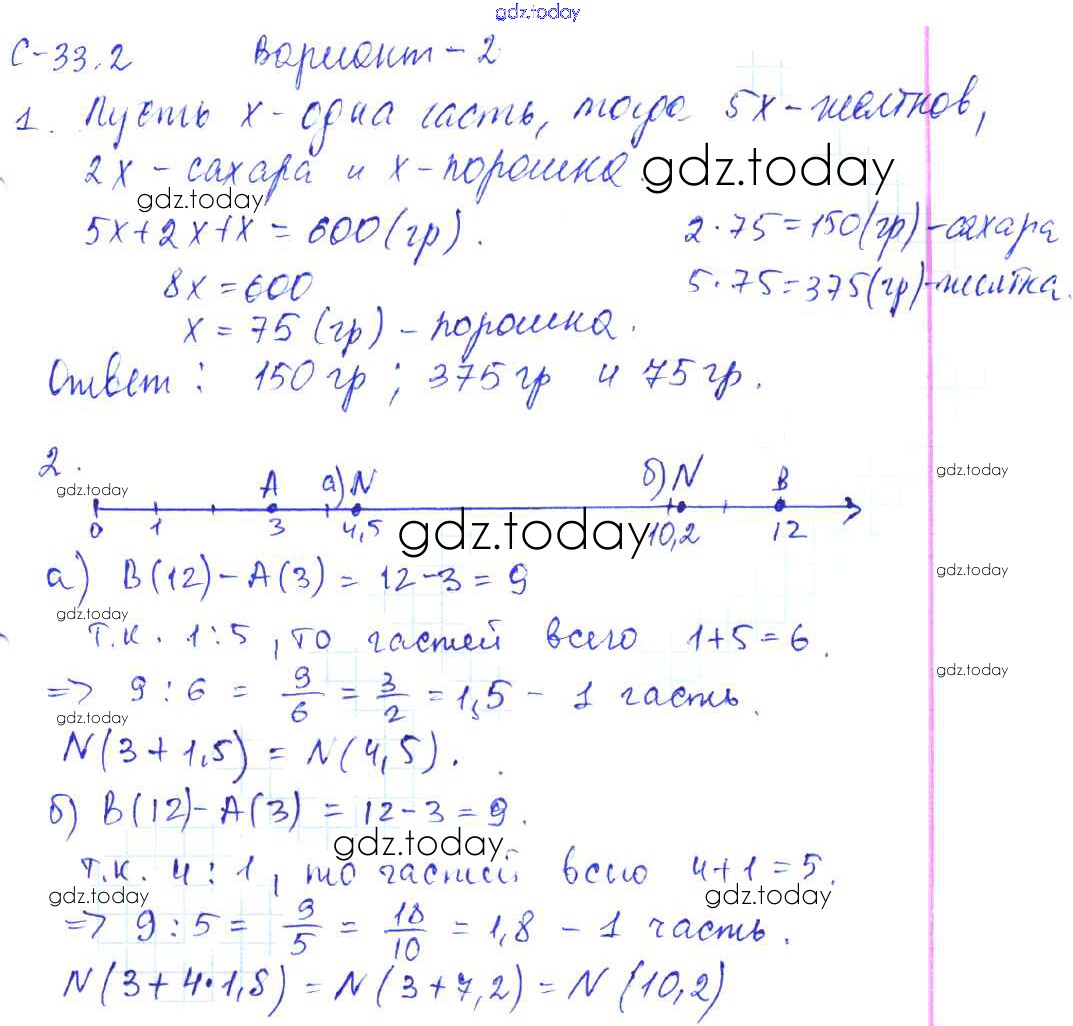 gdz.today
С-33.2 Вариант-2
1. Пусть x - одна часть, тогда 5x - желтков,
2x - сахара и x - порошка. gdz.today
gdz.today
5x+2x+x = 600 (гр). 2·75=150(гр)-сахара
8x = 600 5·75=375(гр)-желтка.
x = 75 (гр) - порошка.
Ответ: 150 гр; 375 гр и 75 гр.
2. A а) N б) N B
gdz.today gdz.today
0 1 3 4,5 gdz.today 10,2 12
а) B(12) - A(3) = 12-3 = 9 gdz.today
gdz.today
Т.К. 1:5, то частей всего 1+5=6.
gdz.today
=> 9:6 = 9/6 = 3/2 = 1,5 - 1 часть.
gdz.today
N(3+1,5) = N(4,5).
б) B(12) - A(3) = 12-3 = 9.
gdz.today
Т.К. 4:1, то частей всего 4+1=5.
gdz.today gdz.today
=> 9:5 = 9/5 = 18/10 = 1,8 - 1 часть.
N(3+4·1,8) = N(3+7,2) = N(10,2)